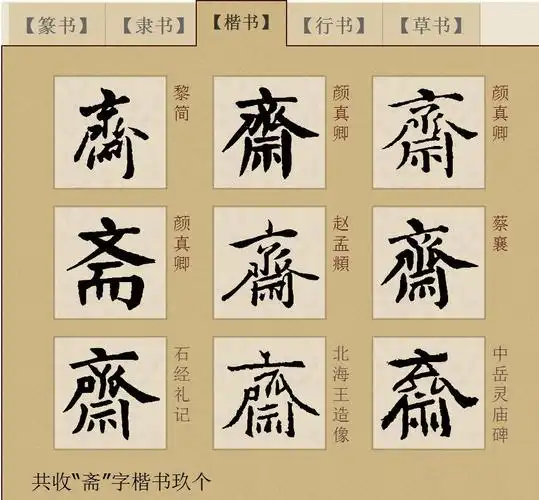 【篆书】 【隶书】 【楷书】 【行书】 【草书】
齋 黎简 齋 颜真卿 齋 颜真卿
斋 颜真卿 齋 赵孟頫 齋 蔡襄
齋 石经礼记 齋 北海王造像 齋 中岳灵庙碑
共收“斋”字楷书玖个